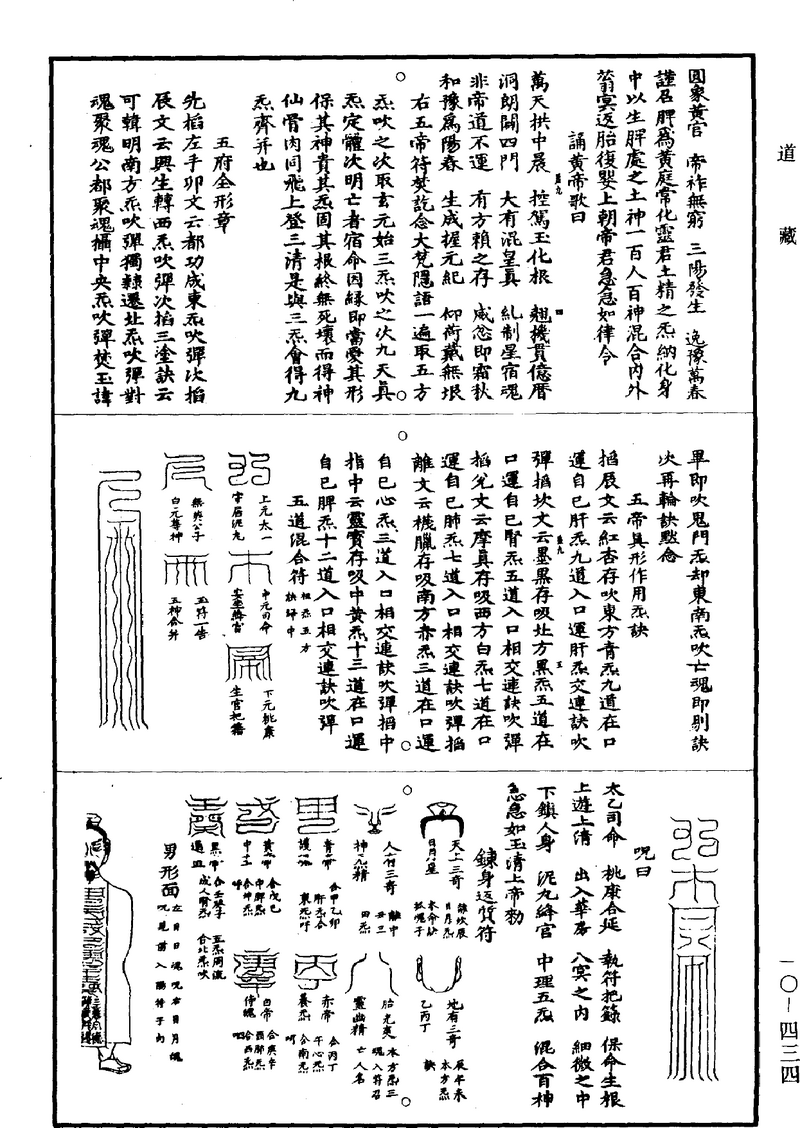 道藏
圓象黃官　帝祚無窮　三陽發生　逸豫萬春
謹召脾為黃庭常化靈君土精之炁納化身
中以生脾處之土神一百人百神混合內外
蓊冥返胎復嬰上朝帝君急急如律令
誦黃帝歌曰
萬天拱中晨　控駕玉化根　魁機貫億曆
洞朗闢四門　大有混皇真　糺制星宿魂
非帝道不運　有方賴之存　咸忿即霜秋
和豫為陽春　生成握元紀　仰荷戴無垠
右五帝符焚訖念大梵隱語一遍取五方
炁吹之次取玄元始三炁吹之次九天真
炁定體次明亡者宿命因緣即當愛其形
保其神貴其炁固其根終無死壞而得神
仙骨肉同飛上登三清是與三炁會得九
炁齊并也
五府全形章
先掐左手卯文云都功成東炁吹彈次掐
辰文云興生轉西炁吹彈次掐三塗訣云
可韓明南方炁吹彈獨隸還北炁吹彈對
魂聚魂公都聚魂攝中央炁吹彈焚玉諱
畢即吹鬼門炁却東南炁吹亡魂即剔訣
次再輪訣默念
五帝真形作用炁訣
掐辰文云紅杏存吹東方青炁九道在口
運自己肝炁九道入口運肝炁交連訣吹
彈掐坎文云墨黑存吸北方黑炁五道在
口運自己腎炁五道入口相交連訣吹彈
掐兌文云摩真存吸西方白炁七道在口
運自己肺炁七道入口相交連訣吹彈掐
離文云機臘存吸南方赤炁三道在口運
自己心炁三道入口相交連訣吹彈掐中
指中云靈寶存吸中黃炁十三道在口運
自己脾炁十二道入口相交連訣吹彈
五道混合符
上元太一
守居泥丸
中元司命
下元桃康
生官把籍
無英公子
白元尊神
玉符一告
五神合并
太乙司命　桃康合延　執符把籙　保命生根
上遊上清　出入華房　八冥之內　細微之中
下鎮人身　泥丸絳宮　中理五炁　混合百神
急急如玉清上帝勑
呪曰
鍊身返質符
天上三奇
日月星
人有三奇
神炁精
地有三奇
乙丙丁
青帝
護魂
赤帝
養炁
白帝
侍魄
黃帝
中主
黑帝
通血
男形面